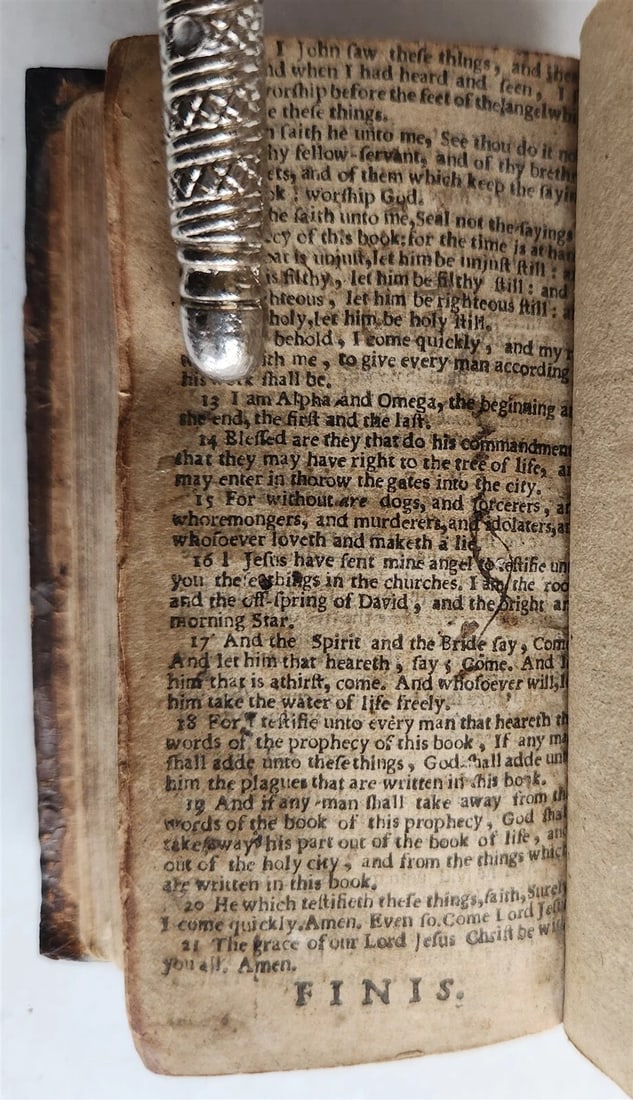 I John ſaw theſe things, and
when I had heard and ſeen, I
before the feet of the angel
theſe things.
ſaith he unto me, See thou do it
fellow-ſervant, and of thy
and of them which keep the
worſhip God.
ſaith unto me, Seal not the ſayings
of this book: for the time is at
is unjuſt, let him be unjuſt ſtill :
is filthy, let him be filthy ſtill : and
let him be righteous ſtill :
holy, let him be holy ſtill.
behold, I come quickly, and my
me, to give every man according
his work ſhall be.
13 I am Alpha and Omega, the beginning
the end, the firſt and the laſt.
14 Bleſſed are they that do his
that they may have right to the tree of life,
may enter in thorow the gates into the city.
15 For without are dogs, and ſorcerers,
whoremongers, and murderers, and idolaters,
whoſoever loveth and maketh a lie.
16 I Jeſus have ſent mine angel to teſtifie
you theſe things in the churches. I am the
and the off-ſpring of David, and the bright
morning Star.
17 And the Spirit and the Bride ſay,
And let him that heareth, ſay, Come. And
him that is athirſt, come. And whoſoever will,
him take the water of life freely.
18 For I teſtifie unto every man that heareth
words of the prophecy of this book, If any
ſhall adde unto theſe things, God ſhall adde
him the plagues that are written in this book.
19 And if any man ſhall take away from
words of the book of this prophecy, God
take away his part out of the book of life,
out of the holy city, and from the things
are written in this book.
20 He which teſtifieth theſe things, ſaith,
I come quickly. Amen. Even ſo. Come Lord
21 The grace of our Lord Jeſus Chriſt be
you all. Amen.
FINIS.